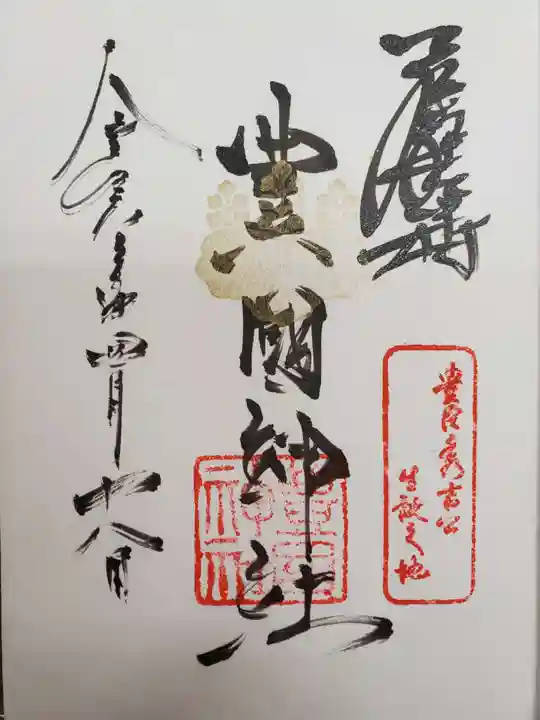 豊臣秀吉公
生誕之地
豊國神社
豊國
神社
令和 年四月十八日